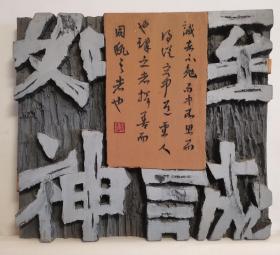 至誠
如神
誠者不勉而中不思而
得從容中道聖人
也誠之者擇善而
固執之者也